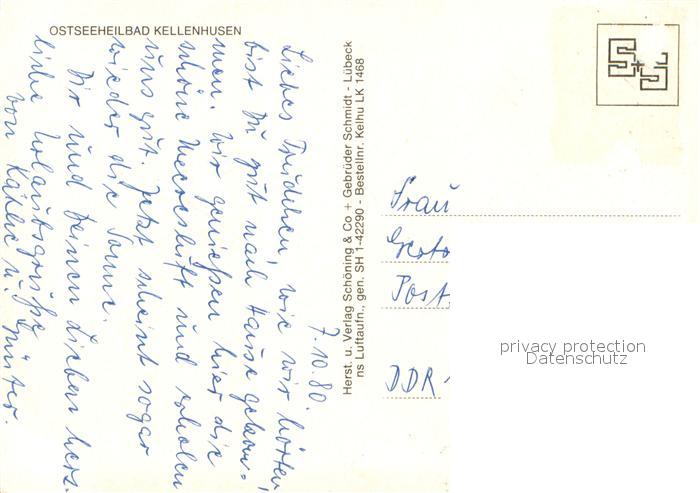 OSTSEEHEILBAD KELLENHUSEN
7.10.80.
Liebes Trudchen, wie wir hörten
bist Du gut nach Hause gekom-
men. Wir genießen hier die
schöne Meeresluft und erholen
uns gut. Jetzt scheint sogar
wieder die Sonne.
Dir und Deinen Lieben herz-
liche Urlaubsgrüße
von Käthe u. Günter.
Herst. u. Verlag Schöning & Co + Gebrüder Schmidt - Lübeck
ns Luftaufn., gen. SH 1-42290 - Bestellnr. Kelhu LK 1468
S+S
Frau
Post
DDR -
privacy protection
Datenschutz